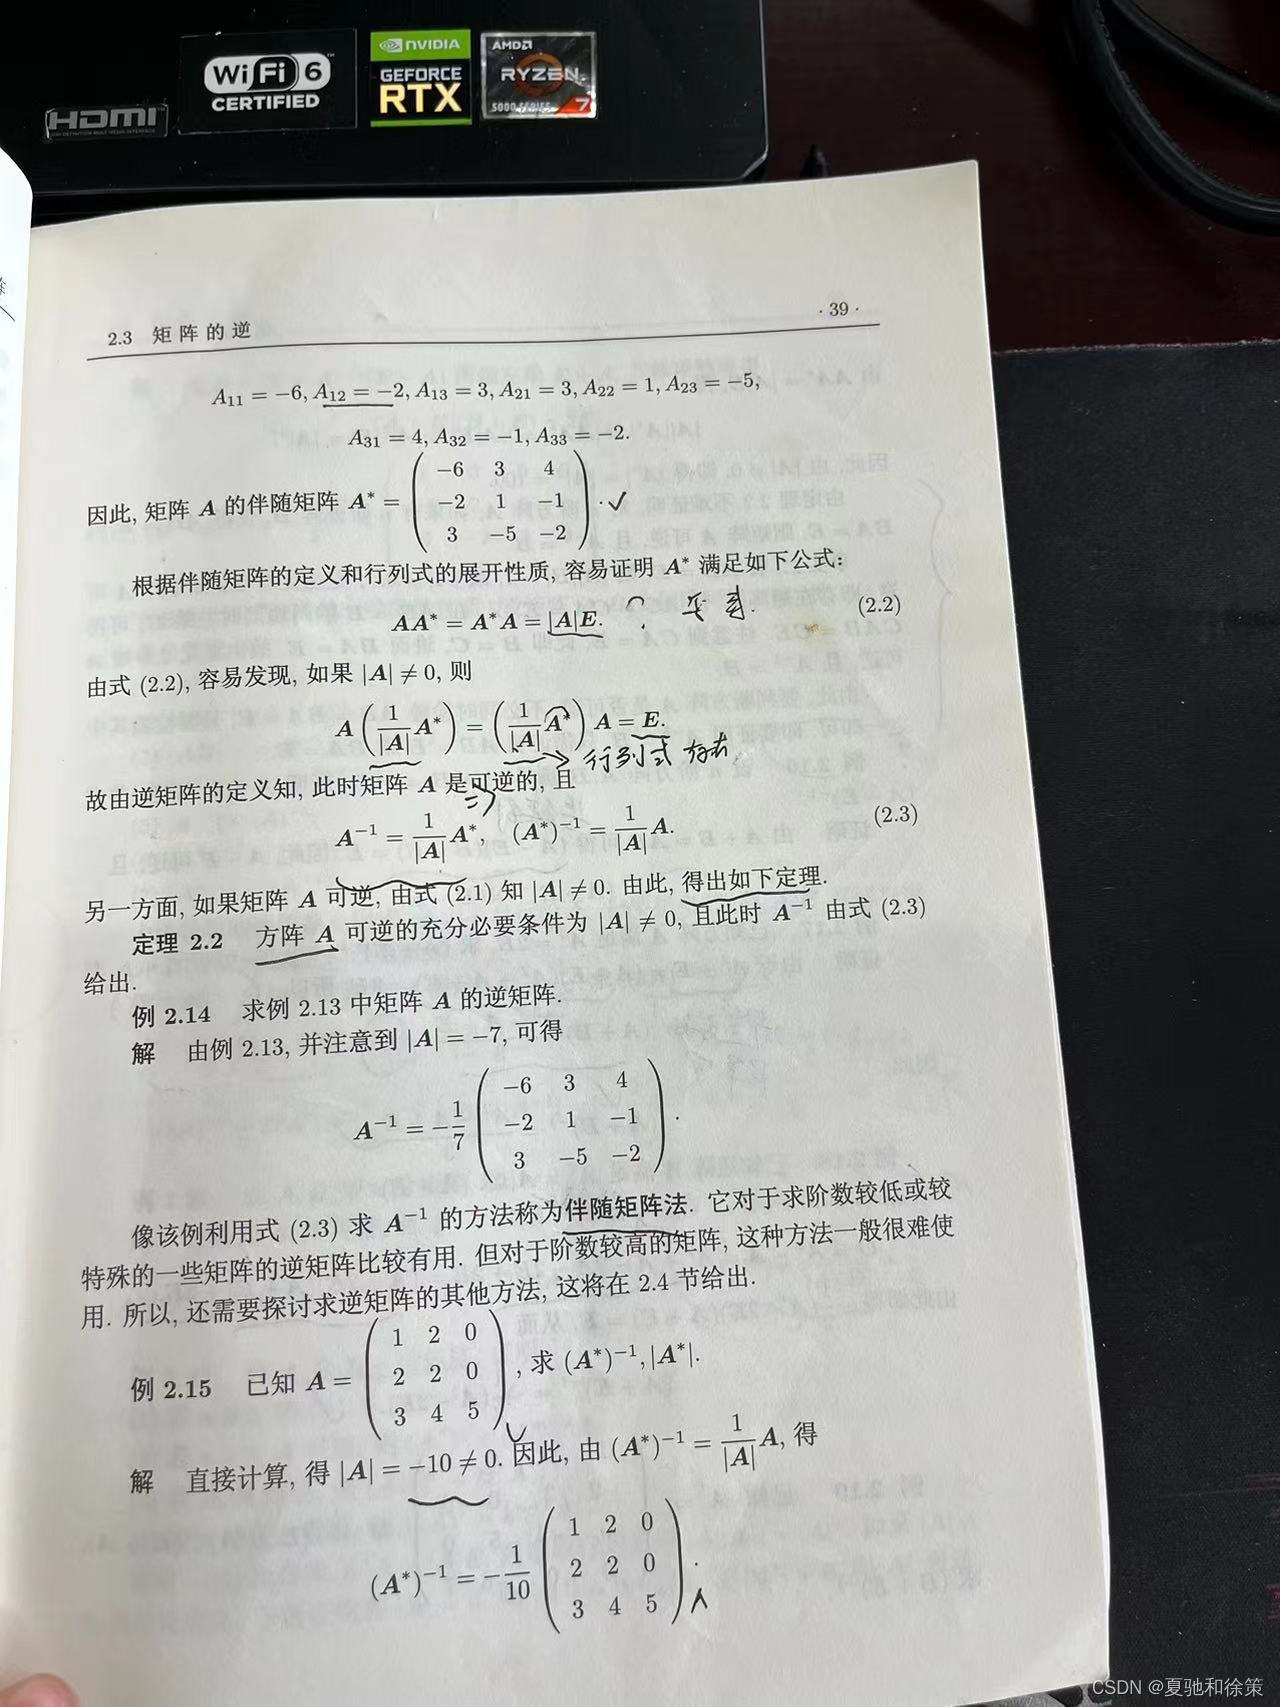 HDMI
WiFi 6
CERTIFIED
NVIDIA
GEFORCE
RTX
AMD
RYZEN
5000 SERIES 7
2.3 矩阵的逆 ·39·
A₁₁ = −6, A₁₂ = −2, A₁₃ = 3, A₂₁ = 3, A₂₂ = 1, A₂₃ = −5,
A₃₁ = 4, A₃₂ = −1, A₃₃ = −2.
因此, 矩阵 A 的伴随矩阵 A* =
−6 3 4
−2 1 −1
3 −5 −2
.
根据伴随矩阵的定义和行列式的展开性质, 容易证明 A* 满足如下公式:
AA* = A*A = |A|E. (2.2)
由式 (2.2), 容易发现, 如果 |A| ≠ 0, 则
A (1/|A| A*) = (1/|A| A*) A = E.
行列式
故由逆矩阵的定义知, 此时矩阵 A 是可逆的, 且
A⁻¹ = 1/|A| A*, (A*)⁻¹ = 1/|A| A. (2.3)
另一方面, 如果矩阵 A 可逆, 由式 (2.1) 知 |A| ≠ 0. 由此, 得出如下定理.
定理 2.2 方阵 A 可逆的充分必要条件为 |A| ≠ 0, 且此时 A⁻¹ 由式 (2.3)
给出.
例 2.14 求例 2.13 中矩阵 A 的逆矩阵.
解 由例 2.13, 并注意到 |A| = −7, 可得
A⁻¹ = −1/7
−6 3 4
−2 1 −1
3 −5 −2
.
像该例利用式 (2.3) 求 A⁻¹ 的方法称为伴随矩阵法. 它对于求阶数较低或较
特殊的一些矩阵的逆矩阵比较有用. 但对于阶数较高的矩阵, 这种方法一般很难使
用. 所以, 还需要探讨求逆矩阵的其他方法, 这将在 2.4 节给出.
例 2.15 已知 A =
1 2 0
2 2 0
3 4 5
, 求 (A*)⁻¹, |A*|.
解 直接计算, 得 |A| = −10 ≠ 0. 因此, 由 (A*)⁻¹ = 1/|A| A, 得
(A*)⁻¹ = −1/10
1 2 0
2 2 0
3 4 5
.
CSDN @夏驰和徐策